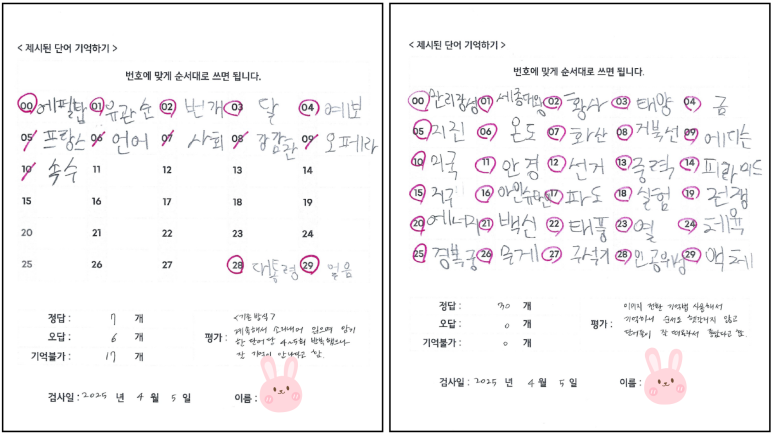 < 제시된 단어 기억하기 >
번호에 맞게 순서대로 쓰면 됩니다.
00 에펠탑 01 유관순 02 번개 03 달 04 예보
05 프랑스 06 언어 07 사회 08 09 오페라
10 속수 11 12 13 14
15 16 17 18 19
20 21 22 23 24
25 26 27 28 대통령 29 얼음
정답 : 7 개
오답 : 6 개
기억불가 : 17 개
평가 :
<기존방식>
계속해서 소리내어 읽으며 암기
한 단어당 4~5회 반복했으나
잘 기억이 안난다고 함.
검사일 : 2025 년 4 월 5 일 이름 :
< 제시된 단어 기억하기 >
번호에 맞게 순서대로 쓰면 됩니다.
00 만리장성 01 세종대왕 02 황사 03 태양 04 금
05 지진 06 온도 07 화산 08 거북선 09 에디슨
10 미국 11 안경 12 선거 13 중력 14 피라미드
15 지구 16 아인슈타인 17 파도 18 실험 19 전쟁
20 에너지 21 백신 22 태풍 23 열 24 체육
25 경복궁 26 무게 27 구석기 28 인공위성 29 액체
정답 : 30 개
오답 : 0 개
기억불가 : 0 개
평가 :
이미지 전환 기억법 사용해서
기억하니 순서도 헷갈리지 않고
단어들이 잘 떠올라서 좋았다고 함.
검사일 : 2025 년 4 월 5 일 이름 :